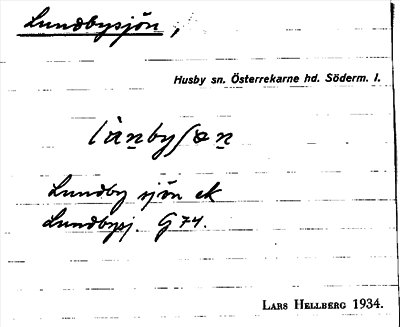 Lundbysjön,
Husby sn. Österrekarne hd. Söderm. l.
Lundby sjön ek
Lundbysj. G 74.
LARS HELLBERG 1934.